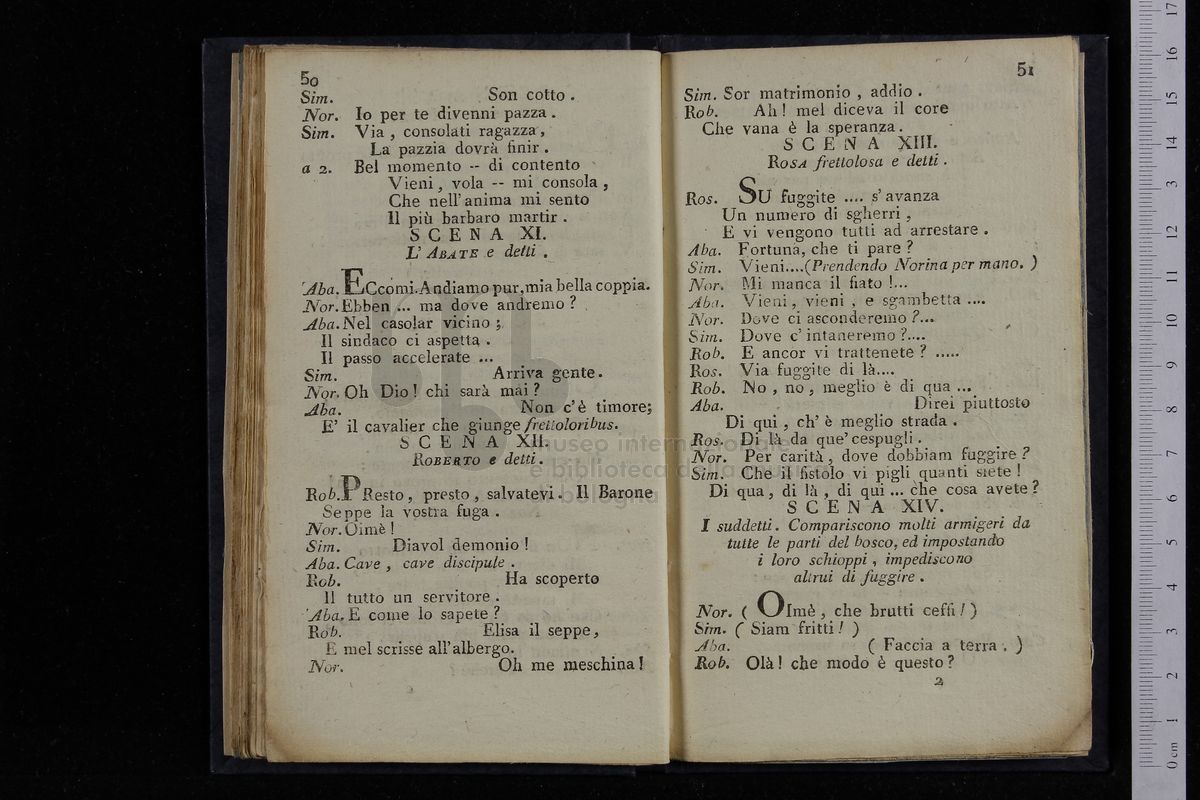 50
Sim. Son cotto .
Nor. Io per te divenni pazza .
Sim. Via , consolati ragazza ,
La pazzia dovrà finir .
a 2. Bel momento -- di contento
Vieni , vola -- mi consola ,
Che nell'anima mi sento
Il più barbaro martir .
SCENA XI.
L'ABATE e detti .
Aba. ECcomi. Andiamo pur, mia bella coppia.
Nor. Ebben ... ma dove andremo ?
Aba. Nel casolar vicino ;
Il sindaco ci aspetta .
Il passo accelerate ...
Sim. Arriva gente .
Nor. Oh Dio ! chi sarà mai ?
Aba. Non c'è timore;
E' il cavalier che giunge frettoloribus.
SCENA XII.
ROBERTO e detti .
Rob. PResto , presto , salvatevi . Il Barone
Seppe la vostra fuga .
Nor. Oimè !
Sim. Diavol demonio !
Aba. Cave , cave discipule .
Rob. Ha scoperto
Il tutto un servitore .
Aba. E come lo sapete ?
Rob. Elisa il seppe ,
E mel scrisse all'albergo.
Nor. Oh me meschina !
51
Sim. Sor matrimonio , addio .
Rob. Ah ! mel diceva il core
Che vana è la speranza .
SCENA XIII.
ROSA frettolosa e detti .
Ros. SU fuggite .... s'avanza
Un numero di sgherri ,
E vi vengono tutti ad arrestare .
Aba. Fortuna, che ti pare ?
Sim. Vieni....(Prendendo Norina per mano. )
Nor. Mi manca il fiato !...
Aba. Vieni , vieni , e sgambetta ....
Nor. Dove ci asconderemo ?...
Sim. Dove c'intaneremo ?....
Rob. E ancor vi trattenete ? .....
Ros. Via fuggite di là....
Rob. No , no , meglio è di qua ...
Aba. Direi piuttosto
Di qui , ch'è meglio strada .
Ros. Di là da que' cespugli .
Nor. Per carità , dove dobbiam fuggire ?
Sim. Che il fistolo vi pigli quanti siete !
Di qua , di là , di qui ... che cosa avete ?
SCENA XIV.
I suddetti . Compariscono molti armigeri da
tutte le parti del bosco, ed impostando
i loro schioppi , impediscono
altrui di fuggire .
Nor. ( OImè , che brutti ceffi ! )
Sim. ( Siam fritti ! )
Aba. ( Faccia a terra . )
Rob. Olà ! che modo è questo ?
2
museo internazionale
e biblioteca della musica
di bologna
0 cm 1 2 3 4 5 6 7 8 9 10 11 12 13 14 15 16 17